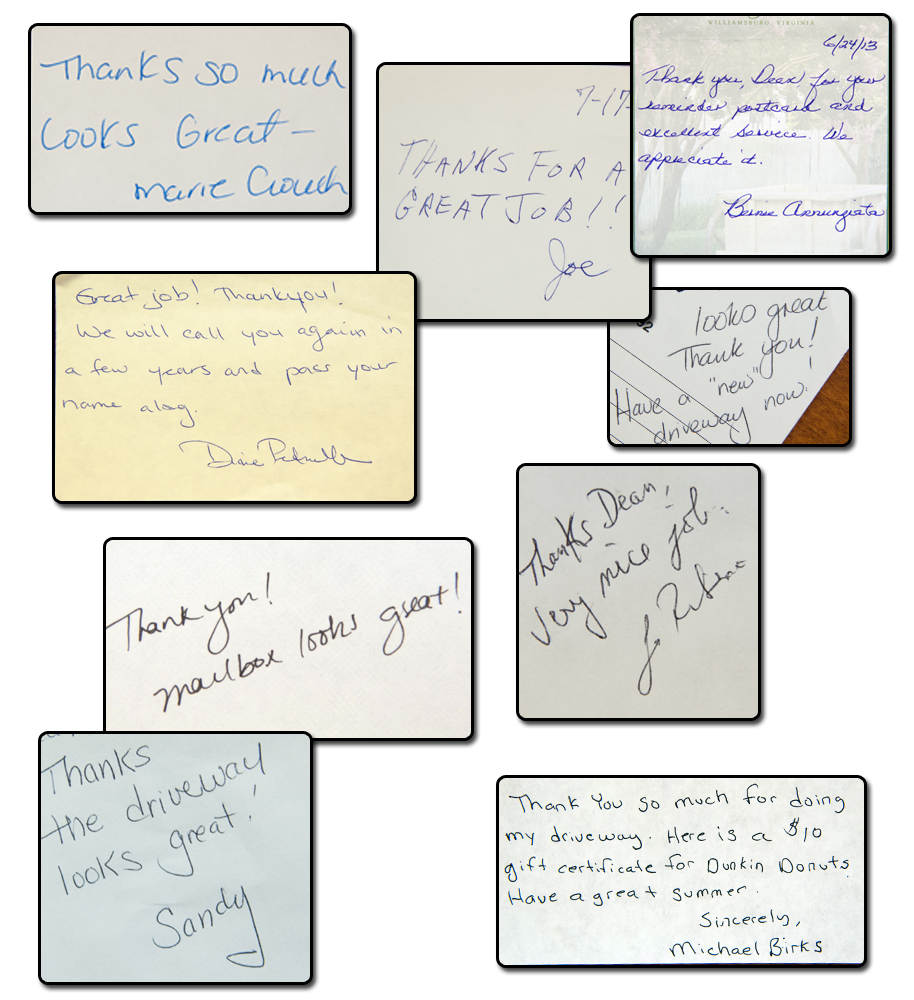 Thanks so much
Looks Great –
Marie Crouch
7-17-
THANKS FOR A
GREAT JOB!!
Joe
WILLIAMSBURG, VIRGINIA
6/24/13
Thank you, Dean for your
reminder postcard and
excellent service. We
appreciate it.
Bernie Annunziata
Great job! Thankyou!
We will call you again in
a few years and pass your
name alog.
Diane
looks great
Thank you!
Have a "new"
driveway now!
Thanks Dean,
Very nice job.
J.
Thank you!
mailbox looks great!
Thanks
the driveway
looks great!
Sandy
Thank You so much for doing
my driveway. Here is a $10
gift certificate for Dunkin Donuts
Have a great summer.
Sincerely,
Michael Birks